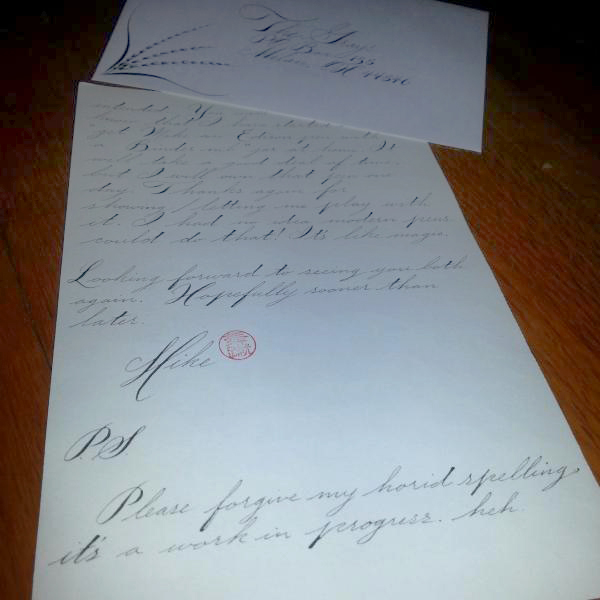 The Grays
intended. You
know that I have started
a Binder and "jar at home. It
will take a good deal of time.
but I will own that fun one
day. Thanks again for
showing/letting me play with
it. I had no idea modern pens
could do that! It's like magic.
Looking forward to seeing you both
again. Hopefully sooner than
later.
Mike
P.S.
Please forgive my horid spelling
it's a work in progress. heh.